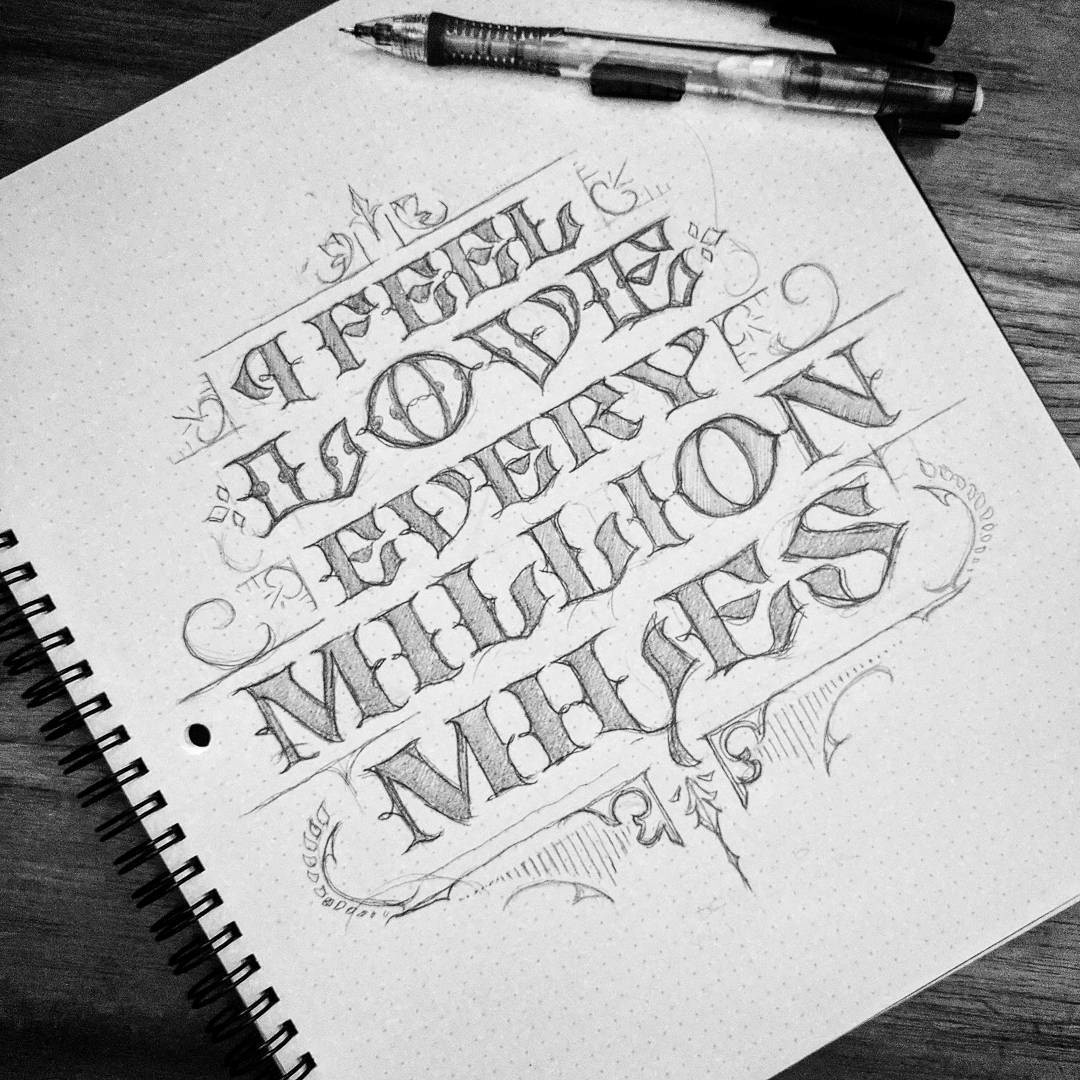 I FEEL
LOVE
EVERY
MILLION
MILES